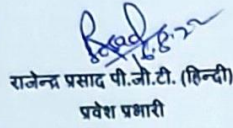 राजेन्द्र प्रसाद पी.जी.टी. (हिन्दी)
प्रवेश प्रभारी